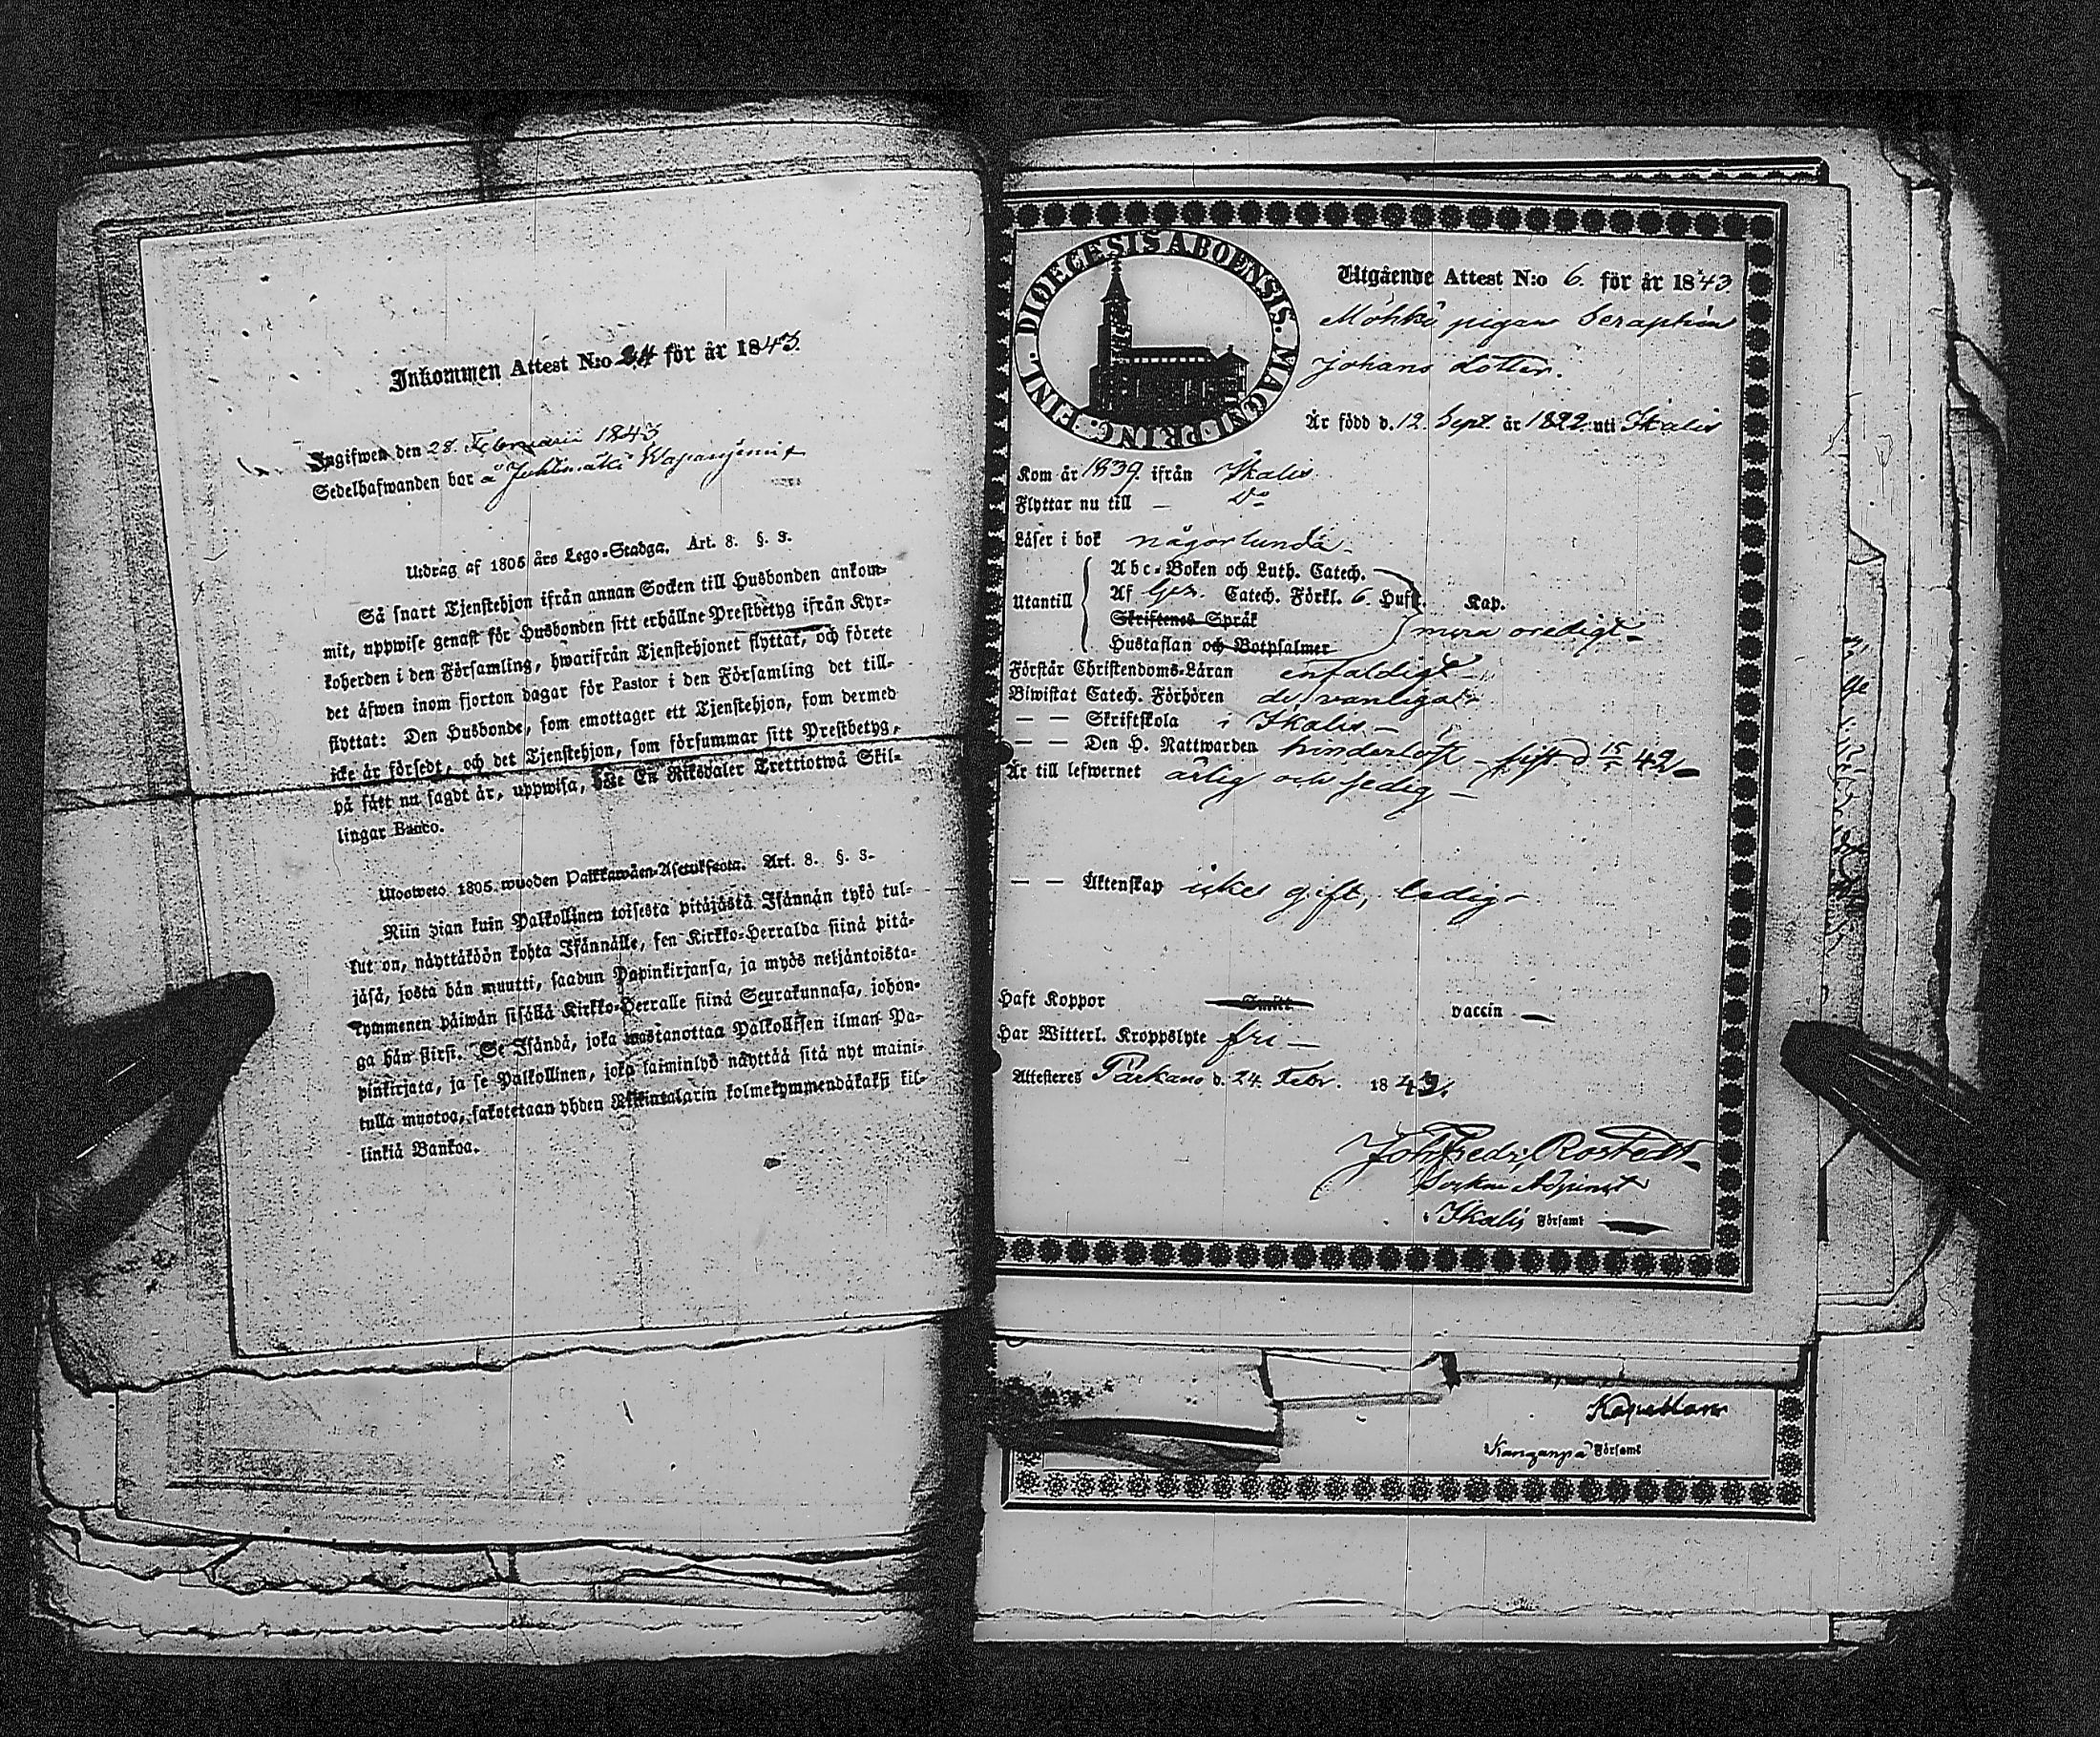 Inkommen Attest N:o 24 för år 1843.
Ingifwen den 28. Februarii 1843
Sedelhafwanden bor å Juhtimäki
Utdrag af 1805 års Lego-Stadga. Art. 8. §. 3.
Så snart Tjenstehjon ifrån annan Socken till Husbonden ankom-
mit, uppwise genast för Husbonden sitt erhållne Prestbetyg ifrån Kyr-
koherden i den Församling, hwarifrån Tjenstehjonet flyttat, och förete
det äfwen inom fjorton dagar för Pastor i den Församling det till-
flyttat: Den Husbonde, som emottager ett Tjenstehjon, som dermed
icke är försedt, och det Tjenstehjon, som försummar sitt Prestbetyg,
på sätt nu sagdt är, uppwisa, böte En Riksdaler Trettiotwå Skil-
lingar Banco.
Ulosweto 1805. wuoden Palkkawäen-Asetuksesta. Art. 8. §. 3.
Niin pian kuin Palkollinen toisesta pitäjästä Isännän tykö tul-
lut on, näyttäköön kohta Isännälle, sen Kirkko-Herralda siinä pitä-
jäsä, josta hän muutti, saadun Papinkirjansa, ja myös neljäntoista-
kymmenen päiwän sisällä Kirkko-Herralle siinä Seurakunnasa, johon-
ga hän siirsi. Se Isändä, joka wastanottaa Palkollisen ilman Pa-
pinkirjata, ja se Palkollinen, joka laiminlyö näyttää sitä nyt maini-
tulla muotoa, sakotetaan yhden Riikintalarin kolmekymmendäkaksi kil-
linkiä Bankoa.
FINL. DIOECESIS ABOENSIS. MAGNI PRINC.
Utgående Attest N:o 6. för år 1843.
Möhkö pigan Seraphina
Johans dotter.
Är född d. 12. Sept. år 1822. uti Ikalis
Kom år 1839. ifrån Ikalis.
Flyttar nu till — Do
Läser i bok någorlunda
Utantill
Abc-Boken och Luth. Catech.
Af Gez. Catech. Förkl. 6. Hufst. Kap.
Skriftenes Språk
mera oredigt
Hustaflan och Botpsalmer
Förstår Christendoms-Läran enfaldigt
Biwistat Catech. Förhören de vanliga
— — Skriftskola i Ikalis —
— — Den H. Nattwarden hinderlöst — sist d 42
Är till lefwernet ärlig och sedig —
— — Äktenskap icke gift, ledig
Haft Koppor Smitt vaccin —
Har Witterl. Kroppslyte fri —
Attesteras Parkano d. 24. Febr. 1843.
Joh. Fredr. Rostedt
Sockne Adjunct
i Ikalis Församl
Kapellan
i Kanganpä Församl